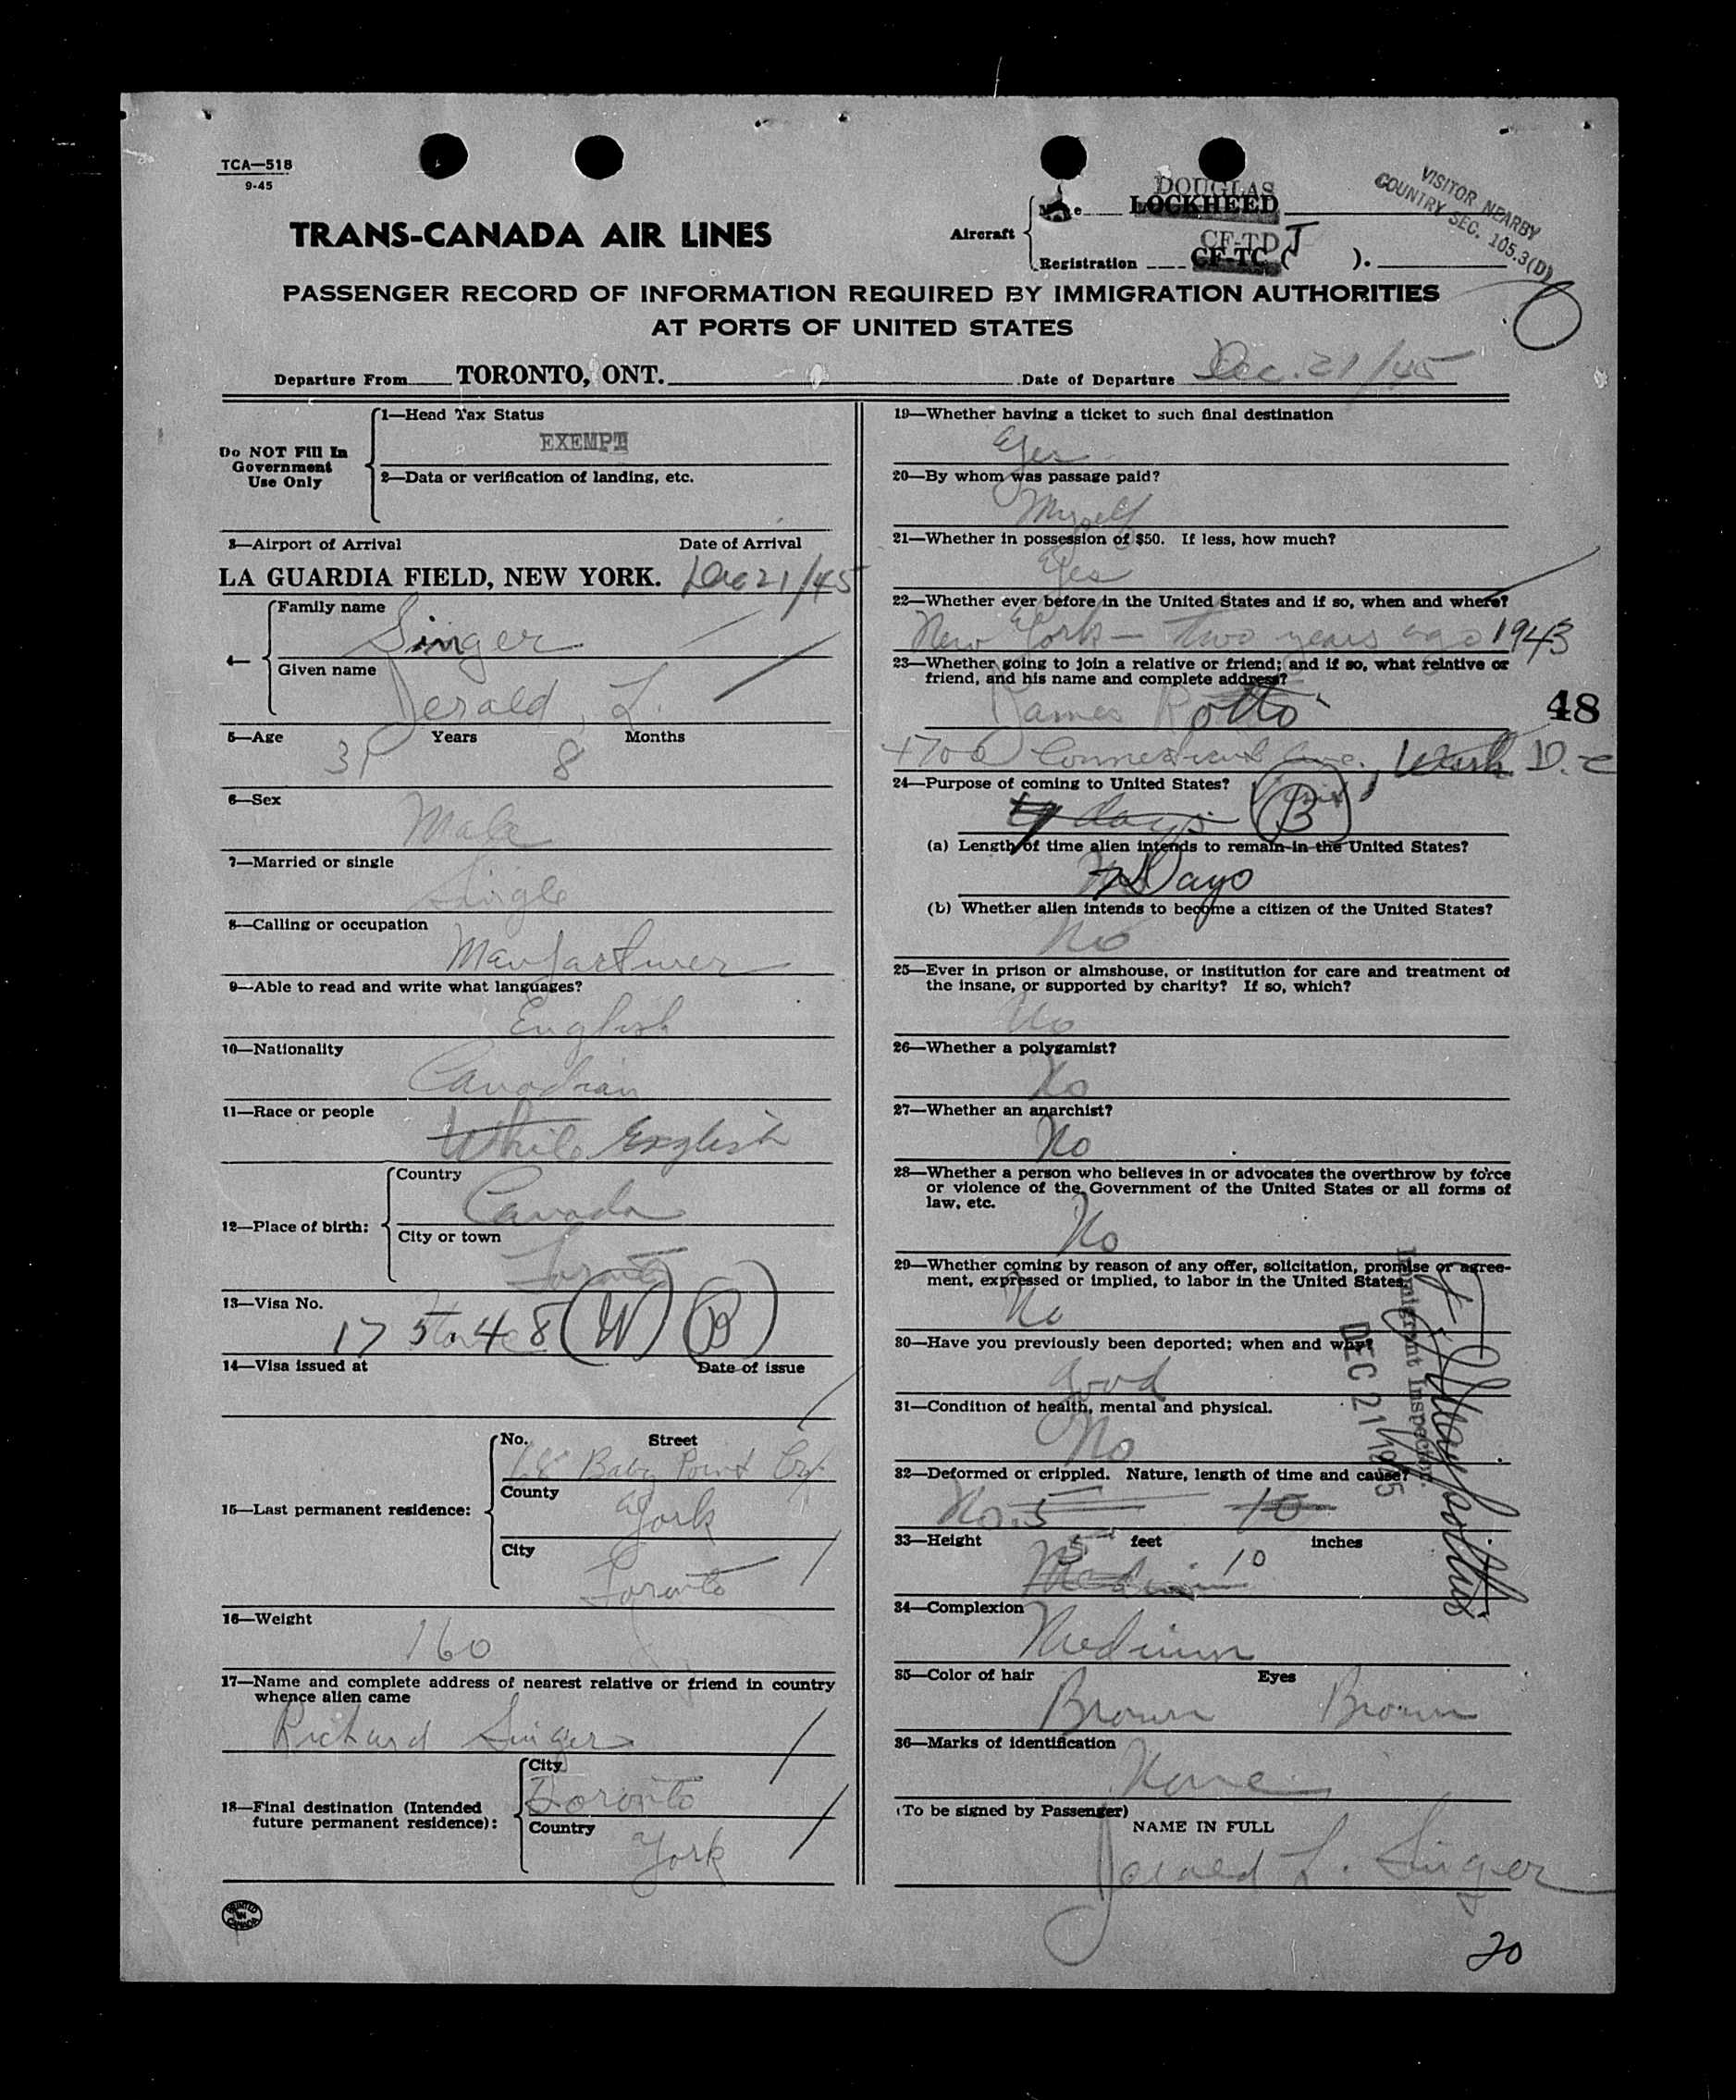 TCA—518
9-45
DOUGLAS
LOCKHEED
VISITOR NEARBY
COUNTRY SEC. 105.3(D)
TRANS-CANADA AIR LINES
Aircraft
CF-TD J
Registration CF-TC ( ).
PASSENGER RECORD OF INFORMATION REQUIRED BY IMMIGRATION AUTHORITIES
AT PORTS OF UNITED STATES
Departure From TORONTO, ONT. Date of Departure Dec. 21/45
Do NOT Fill In
Government
Use Only
1—Head Tax Status
EXEMPT
2—Data or verification of landing, etc.
3—Airport of Arrival Date of Arrival
LA GUARDIA FIELD, NEW YORK. Dec 21/45
4—
Family name
Singer
Given name
Jerald, L.
5—Age Years Months
31 8
6—Sex
Male
7—Married or single
Single
8—Calling or occupation
Manfacturer
9—Able to read and write what languages?
English
10—Nationality
Canadian
11—Race or people
White English
12—Place of birth:
Country
Canada
City or town
Toronto
13—Visa No.
17 48 (W) (B)
14—Visa issued at Date of issue
15—Last permanent residence:
No. Street
68 Baby Point Cr.
County
York
City
Toronto
16—Weight
160
17—Name and complete address of nearest relative or friend in country
whence alien came
Richard Singer
18—Final destination (Intended
future permanent residence):
City
Toronto
Country
York
PRINTED
IN
CANADA
19—Whether having a ticket to such final destination
Yes
20—By whom was passage paid?
Myself
21—Whether in possession of $50. If less, how much?
Yes
22—Whether ever before in the United States and if so, when and where?
New York — two years ago 1943
23—Whether going to join a relative or friend; and if so, what relative or
friend, and his name and complete address?
48
4706 Connecticut Ave., Wash. D.C
24—Purpose of coming to United States? Visit
days (B)
(a) Length of time alien intends to remain in the United States?
7 Days
(b) Whether alien intends to become a citizen of the United States?
No
25—Ever in prison or almshouse, or institution for care and treatment of
the insane, or supported by charity? If so, which?
No
26—Whether a polygamist?
No
27—Whether an anarchist?
No
28—Whether a person who believes in or advocates the overthrow by force
or violence of the Government of the United States or all forms of
law, etc.
No
29—Whether coming by reason of any offer, solicitation, promise or agree-
ment, expressed or implied, to labor in the United States
No
30—Have you previously been deported; when and why?
Good
31—Condition of health, mental and physical.
No
32—Deformed or crippled. Nature, length of time and cause?
No. 5 10
33—Height 5 feet 10 inches
Medium
34—Complexion
Medium
35—Color of hair Eyes
Brown Brown
36—Marks of identification
None
(To be signed by Passenger)
NAME IN FULL
Jerald L. Singer
Immigrant Inspector
DEC 21 1945
20